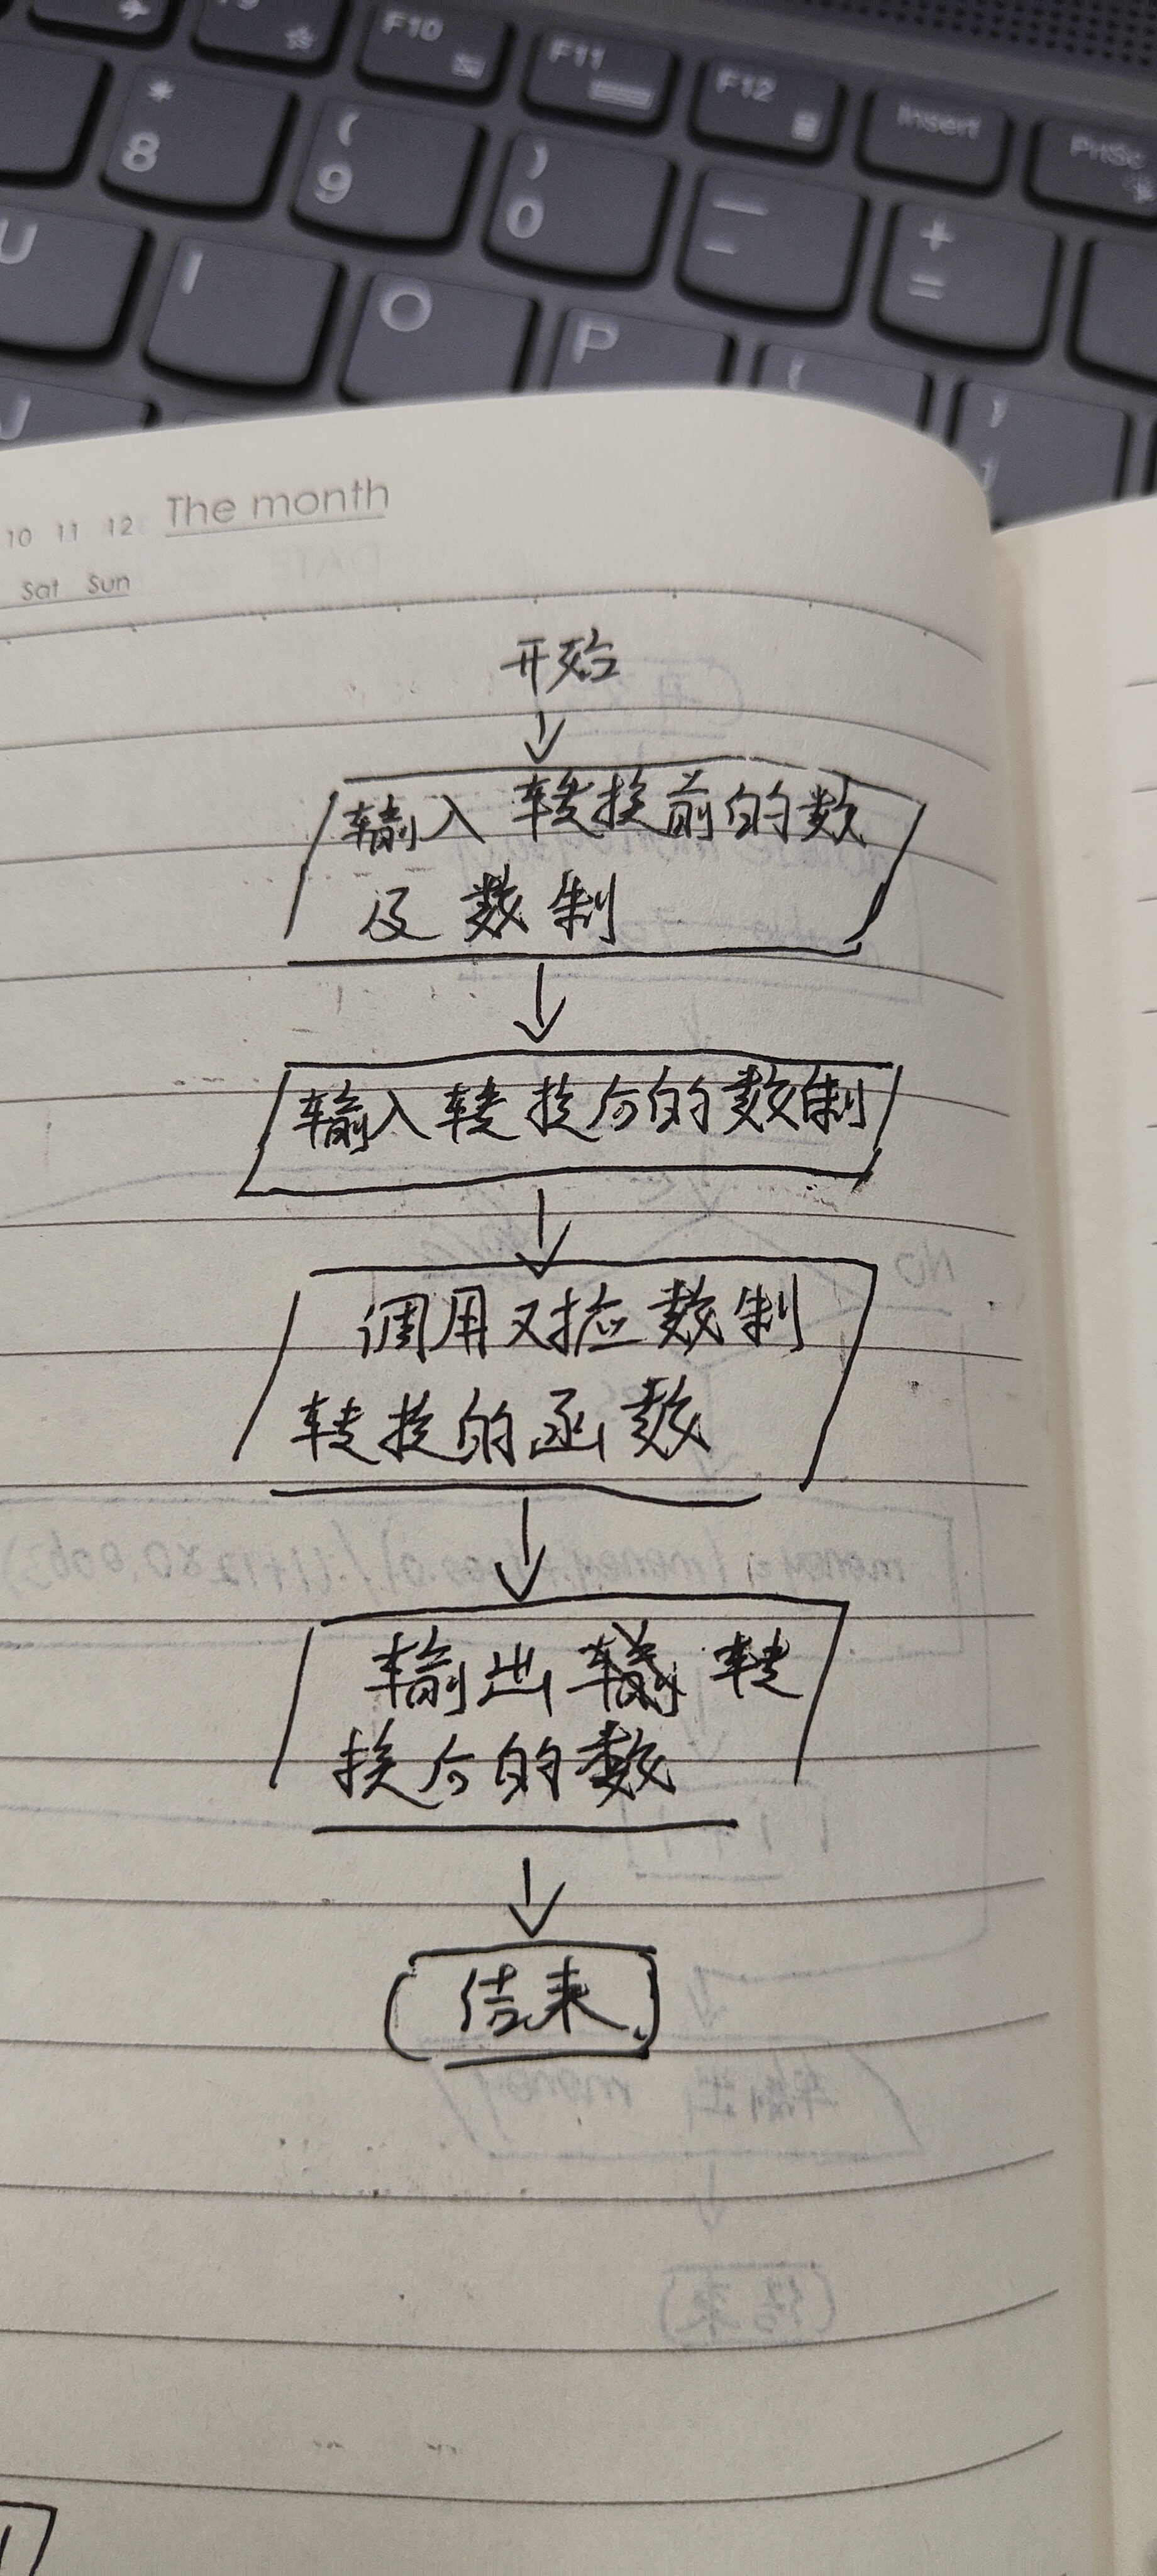 F10
F11
F12
Insert
PrtSc
*
8
(
9
)
0
—
-
+
=
U
I
O
P
J
10 11 12 The month
Sat Sun
开始
输入 转换前的数
及数制
输入转换后的数制
调用对应数制
转换的函数
输出 转
换后的数
结束